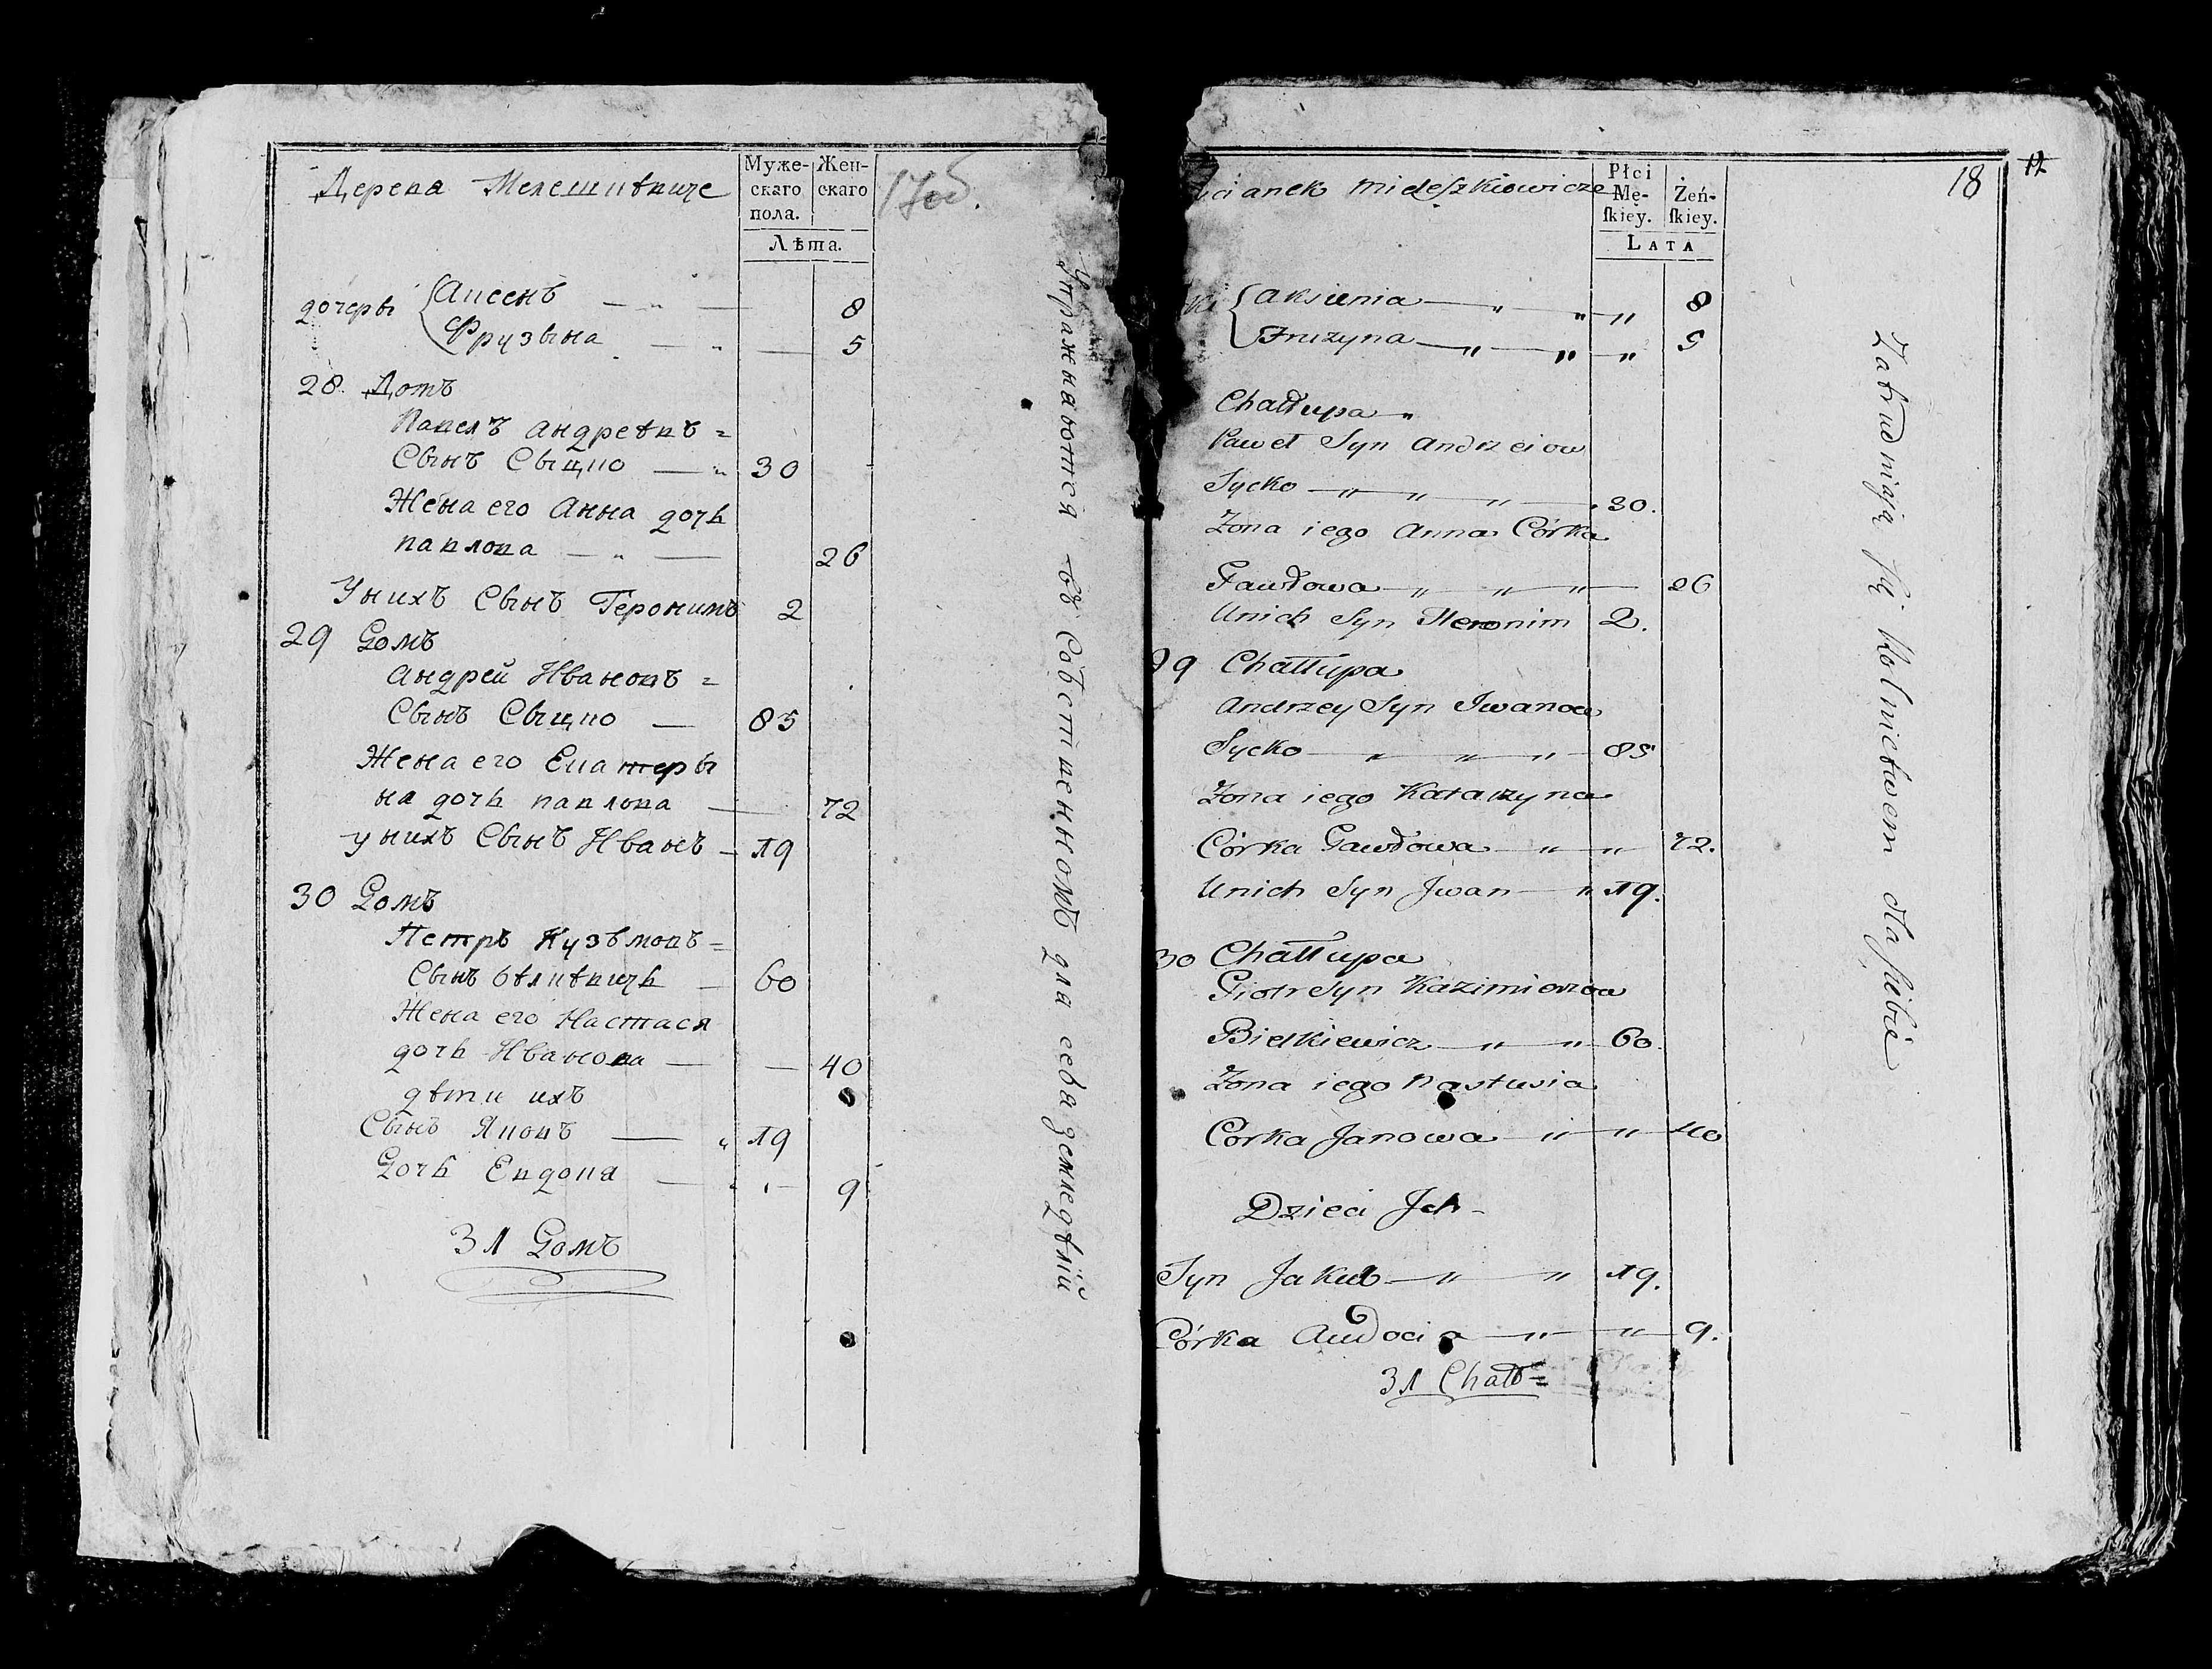 Дерева Мелешивкиче
Муже-
скаго
пола.
Жен-
скаго
Лѣта.
17об.
дочеры
Аксенъ — „ — 8
Фрузына — „ — 5
28 Домъ
Павелъ Андреевъ =
Сынъ Сыцко — „ 30
Жена его Анна дочь
павлова — „ — 26
У нихъ Сынъ Геронимъ 2
29 Домъ
Андрей Ивановъ =
Сынъ Сыцко — 85
Жена его Екатеры
на дочь павлова — 72
у нихъ Сынъ Иванъ — 19
30 Домъ
Петръ Кузьмовъ =
Сынъ бѣлкѣвичь — 60
Жена его Настася
дочь Иванова — — 40
дѣти ихъ
Сынъ Яковъ — „ 19
Дочь Евдокія — 9
31 Домъ
Упражнаются въ Собственномъ для себа земледѣлій
anek mieleszkiewicze
Płci
Mę-
ſkiey.
Żeń-
ſkiey.
LATA
18
Aksienia — „ „ — „ 8
Fruzyna — „ — „ — „ 5
Chałłupa „
Paweł Syn Andrzeiow
Sycko — „ „ „ — 30.
Żona iego Anna Córka
Pawłowa — „ „ „ — 26
Unich Syn Heronim 2.
9 Chałłupa
Andrzey Syn Iwanow
Sycko — „ „ „ — 85
Żona iego Katarzyna
Córka Pawłowa — „ — „ 72.
Unich Syn Jwan — „ 19.
30 Chałłupa
Piotr Syn Kazimierzow
Bielkiewicz — „ — „ 60.
Żona iego Nastusia
Corka Janowa — „ — „ — 40
Dzieci Jch -
Syn Jakub — „ — „ 19.
Córka Audocia — „ — „ — 9.
31 Chałł =
Zatrudniają ſię Rolnictwem dla ſiebie